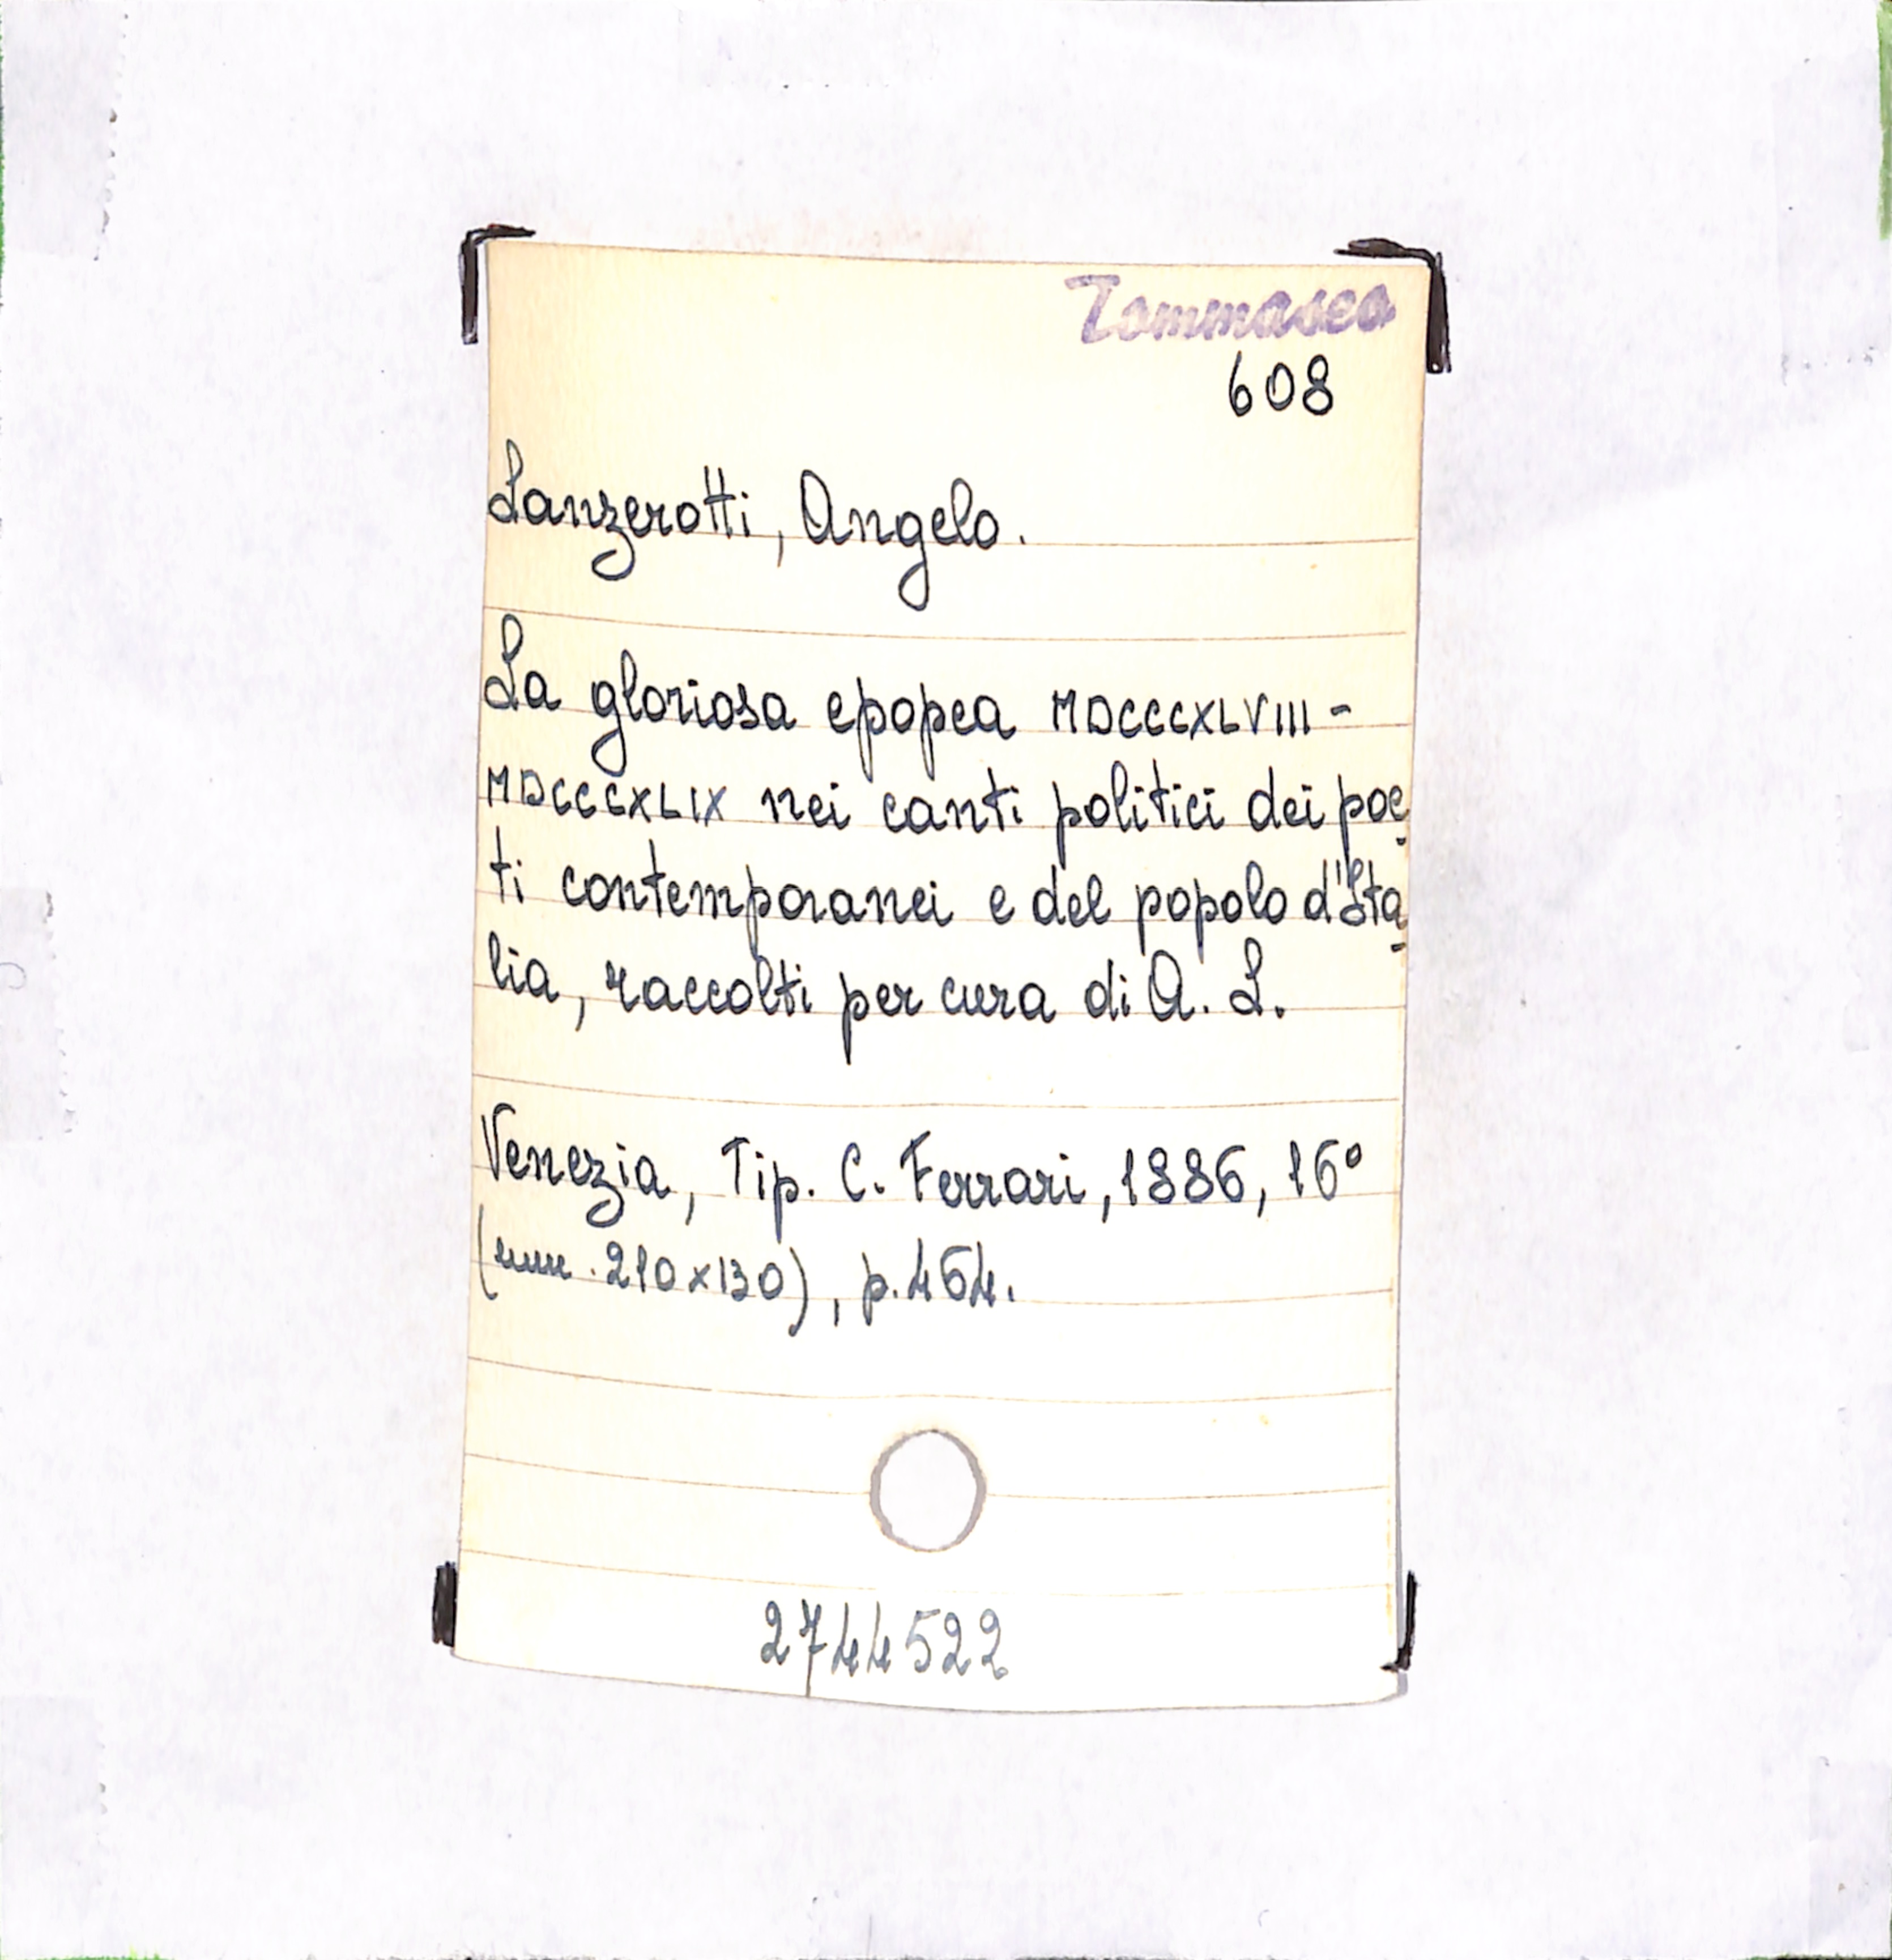 Tommaseo
608
Lanzerotti, Angelo.
La gloriosa epopea MDCCCXLVIII-
MDCCCXLIX nei canti politici dei poe-
ti contemporanei e del popolo d'Ita-
lia, raccolti per cura di A. L.
Venezia, Tip. C. Ferrari, 1886, 16°
(mm. 210x130), p. 464.
2744522